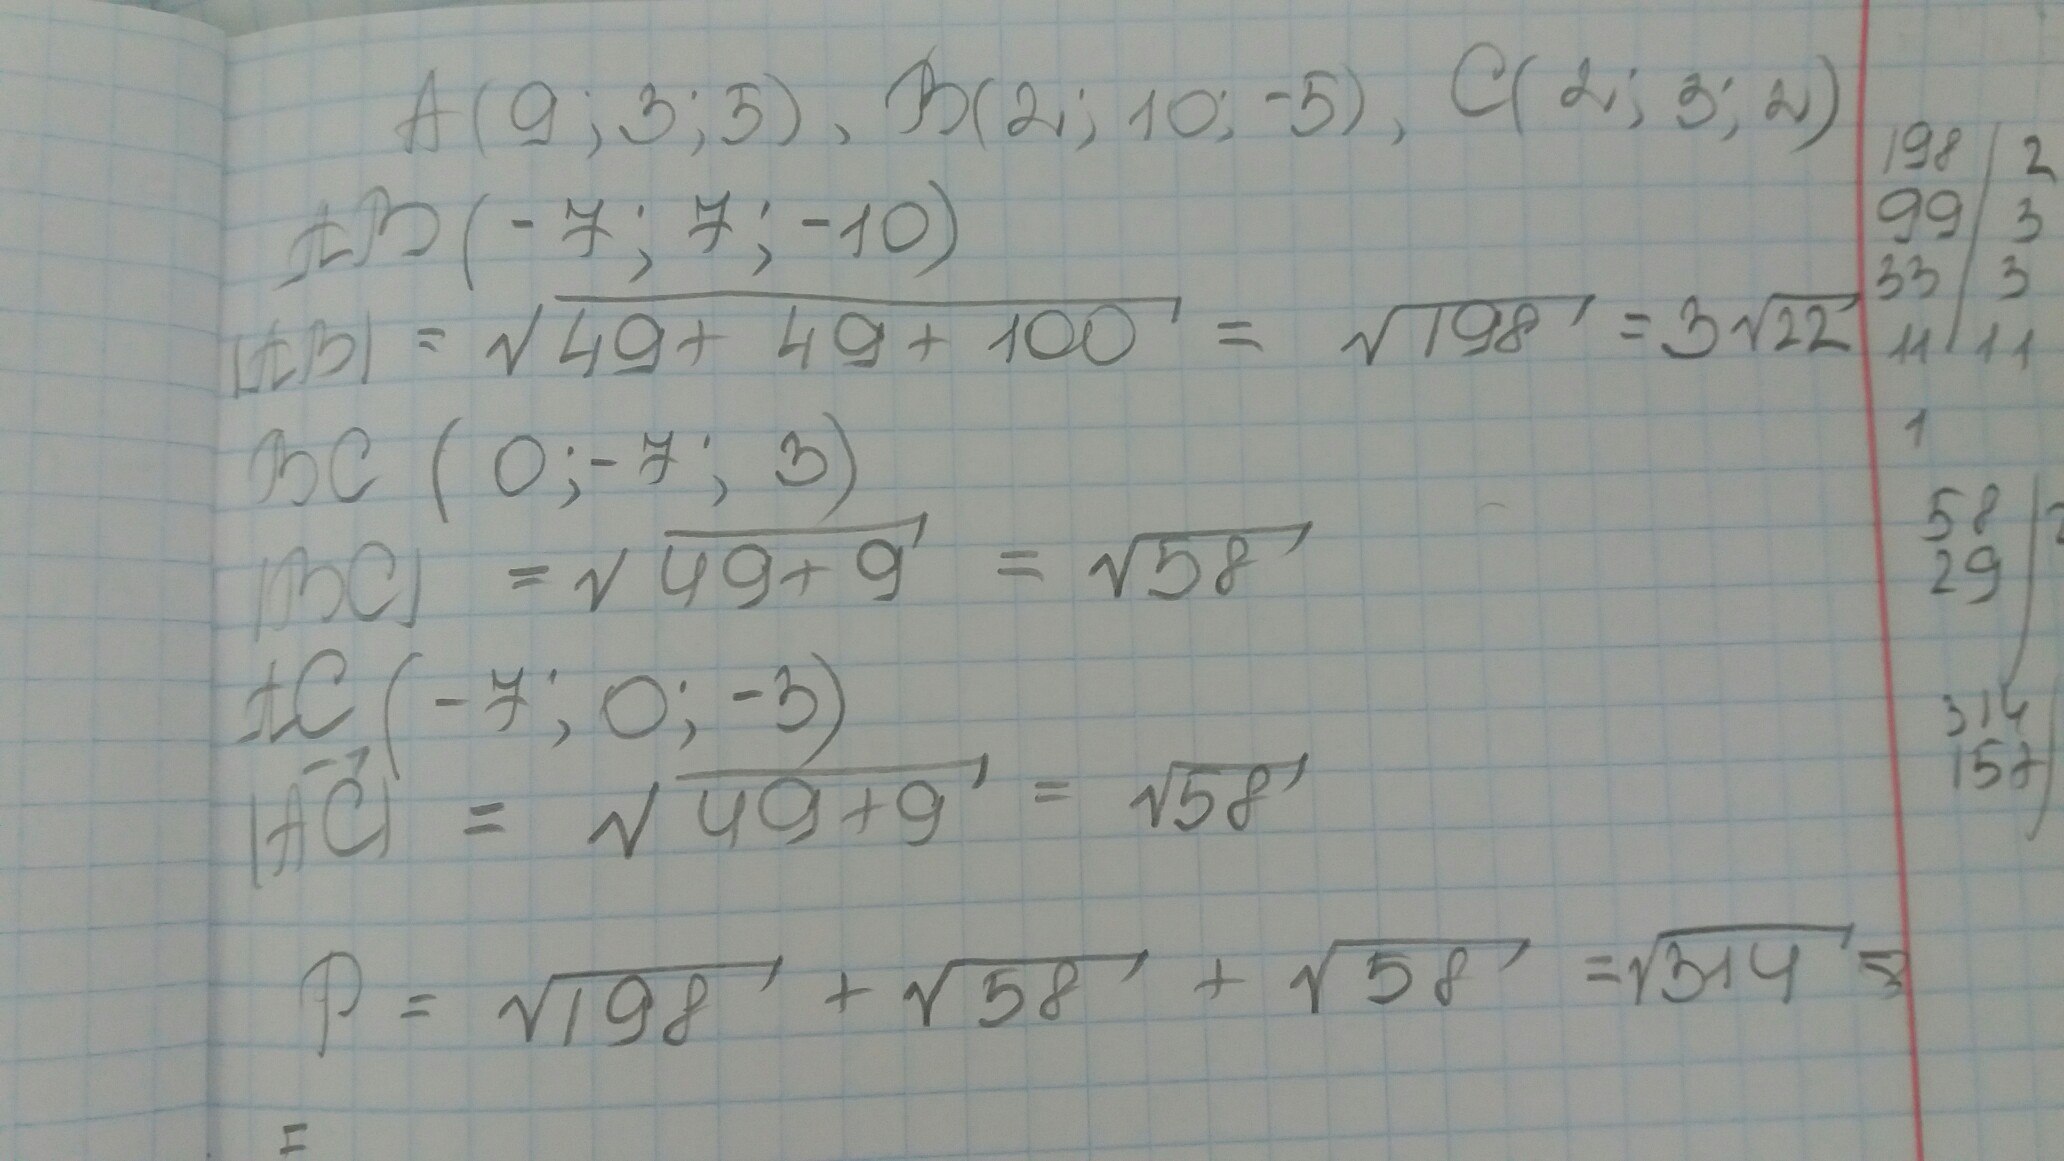 A(9; 3; 5), B(2; 10; -5), C(2; 3; 2)
AB(-7; 7; -10)
|AB| = √49+ 49+ 100 = √198 = 3√22
BC (0; -7; 3)
|BC| = √49+9 = √58
AC (-7; 0; -3)
|AC| = √49+9 = √58
P = √198 + √58 + √58 = √314 =
=
198 | 2
99 | 3
33 | 3
11 | 11
1
58 |
29
314
157